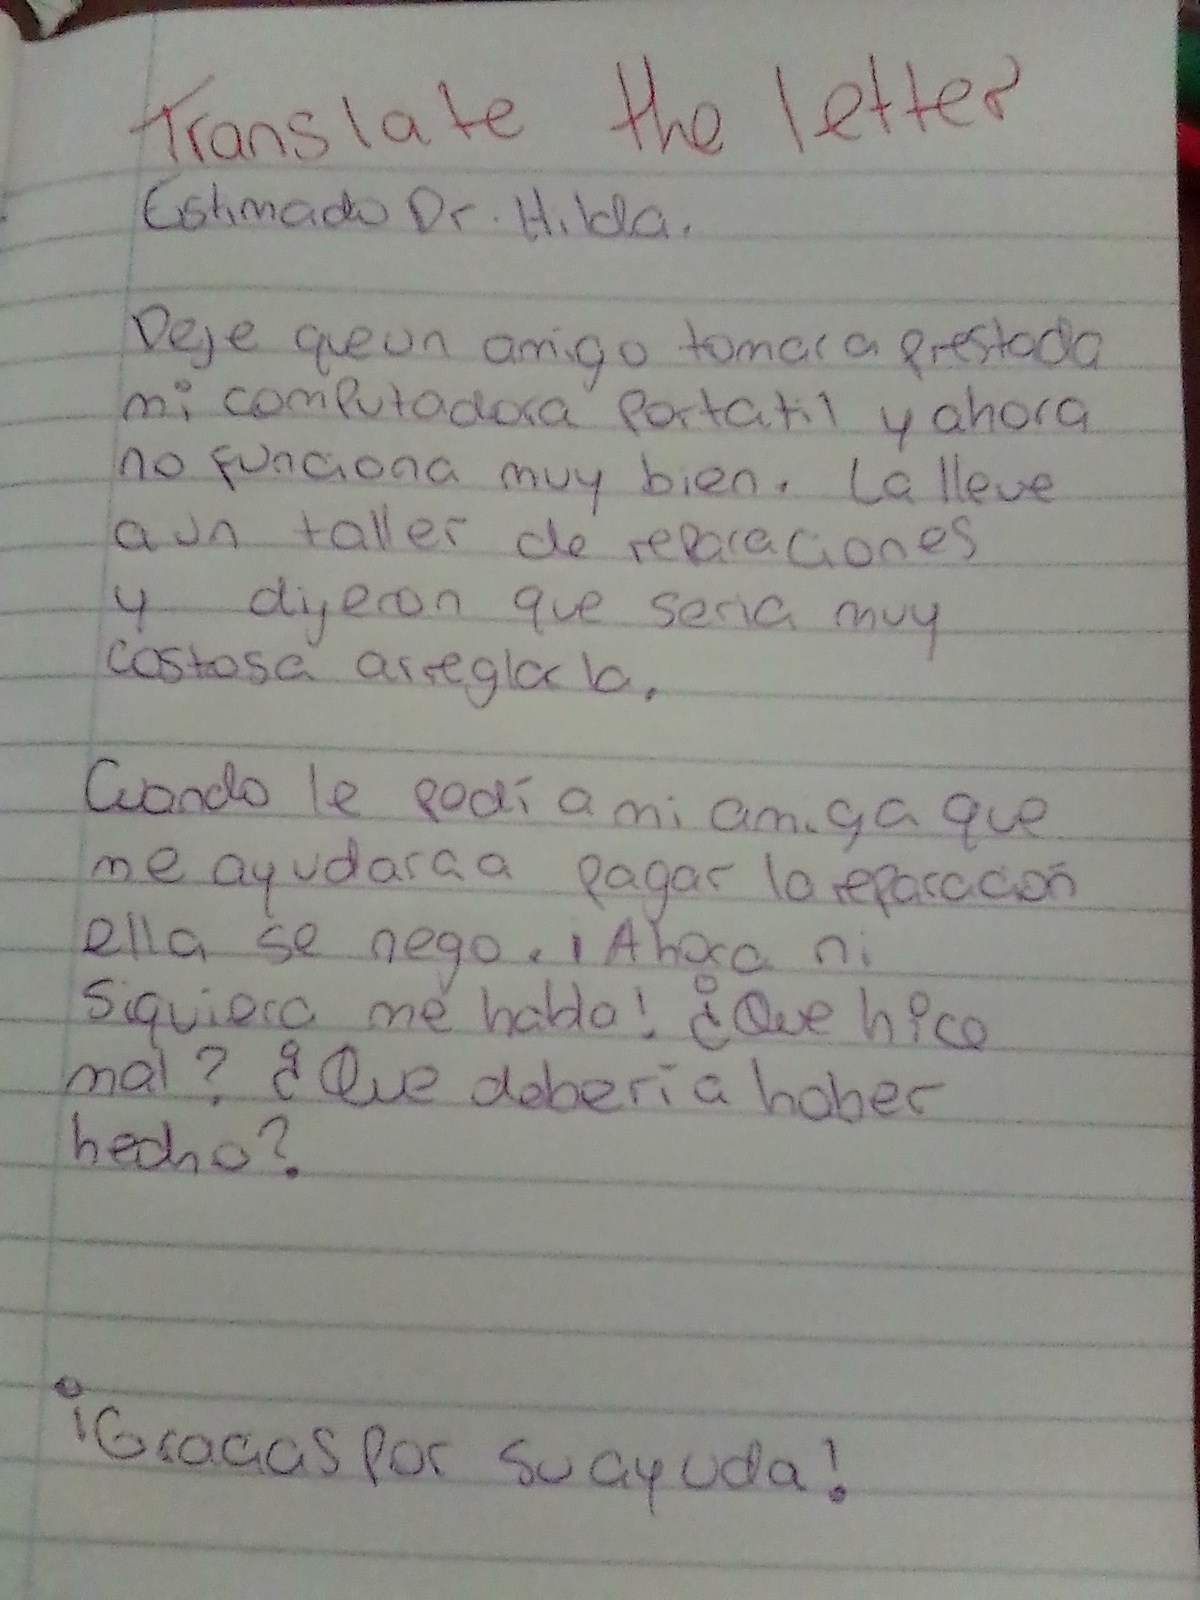 Translate the letter
Estimado Dr. Hilda.
Deje que un amigo tomara prestada
mi computadora portatil y ahora
no funciona muy bien. La lleve
a un taller de reparaciones
y dijeron que seria muy
costosa arreglarla.
Cuando le podí a mi amiga que
me ayudara a pagar la reparación
ella se nego. ¡Ahora ni
siquiera me habla! ¿Que hice
mal? ¿Que debería haber
hecho?
¡Gracias por su ayuda!